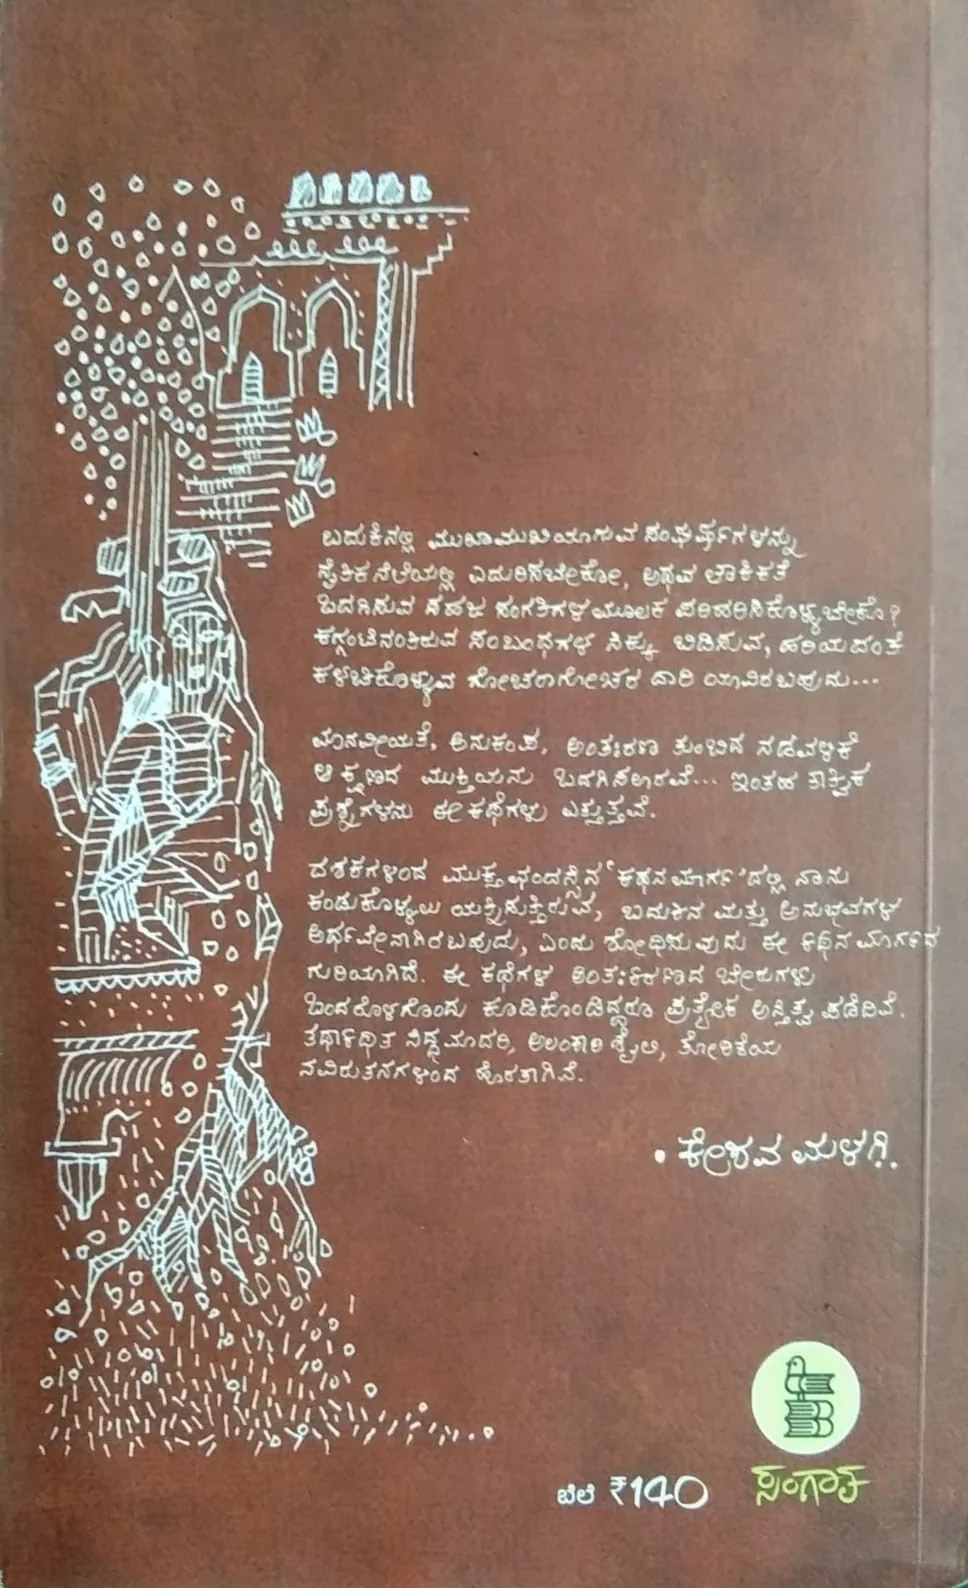 ಬದುಕಿನಲ್ಲಿ ಮುಖಾಮುಖಿಯಾಗುವ ಸಂಘರ್ಷಗಳನ್ನು
ನೈತಿಕ ನೆಲೆಯಲ್ಲಿ ಎದುರಿಸಬೇಕೋ, ಅಥವ ಲೌಕಿಕತೆ
ಒದಗಿಸುವ ಸಹಜ ಸಂಗತಿಗಳ ಮೂಲಕ ಪರಿಹರಿಸಿಕೊಳ್ಳಬೇಕೊ?
ಕಗ್ಗಂಟಿನಂತಿರುವ ಸಂಬಂಧಗಳ ಸಿಕ್ಕು ಬಿಡಿಸುವ, ಹರಿಯದಂತೆ
ಕಳಚಿಕೊಳ್ಳುವ ಗೋಚರಾಗೋಚರ ದಾರಿ ಯಾವಿರಬಹುದು...
ಮಾನವೀಯತೆ, ಅನುಕಂಪ, ಅಂತಃಕರಣ ತುಂಬಿದ ನಡವಳಿಕೆ
ಆ ಕ್ಷಣದ ಮುಕ್ತಿಯನು ಒದಗಿಸಲಾರವೆ... ಇಂತಹ ತಾತ್ವಿಕ
ಪ್ರಶ್ನೆಗಳನು ಈ ಕಥೆಗಳು ಎತ್ತುತ್ತವೆ.
ದಶಕಗಳಿಂದ ಮುಕ್ತಛಂದಸ್ಸಿನ 'ಕಥನ ಮಾರ್ಗ'ದಲ್ಲಿ ನಾನು
ಕಂಡುಕೊಳ್ಳಲು ಯತ್ನಿಸುತ್ತಿರುವ, ಬದುಕಿನ ಮತ್ತು ಅನುಭವಗಳ
ಅರ್ಥವೇನಾಗಿರಬಹುದು, ಎಂದು ಶೋಧಿಸುವುದು ಈ ಕಥನ ಮಾರ್ಗದ
ಗುರಿಯಾಗಿದೆ. ಈ ಕಥೆಗಳ ಅಂತಃಕರಣದ ಬೇರುಗಳು
ಒಂದರೊಳಗೊಂದು ಕೂಡಿಕೊಂಡಿದ್ದರೂ ಪ್ರತ್ಯೇಕ ಅಸ್ತಿತ್ವ ಪಡೆದಿವೆ.
ತಥಾಕಥಿತ ಸಿದ್ಧ ಮಾದರಿ, ಅಲಂಕಾರಿ ಶೈಲಿ, ತೋರಿಕೆಯ
ನವಿರುತನಗಳಿಂದ ಹೊರತಾಗಿವೆ.
• ಕೇಶವ ಮಳಗಿ.
ಬೆಲೆ ₹140
ಸಂಗಾತ